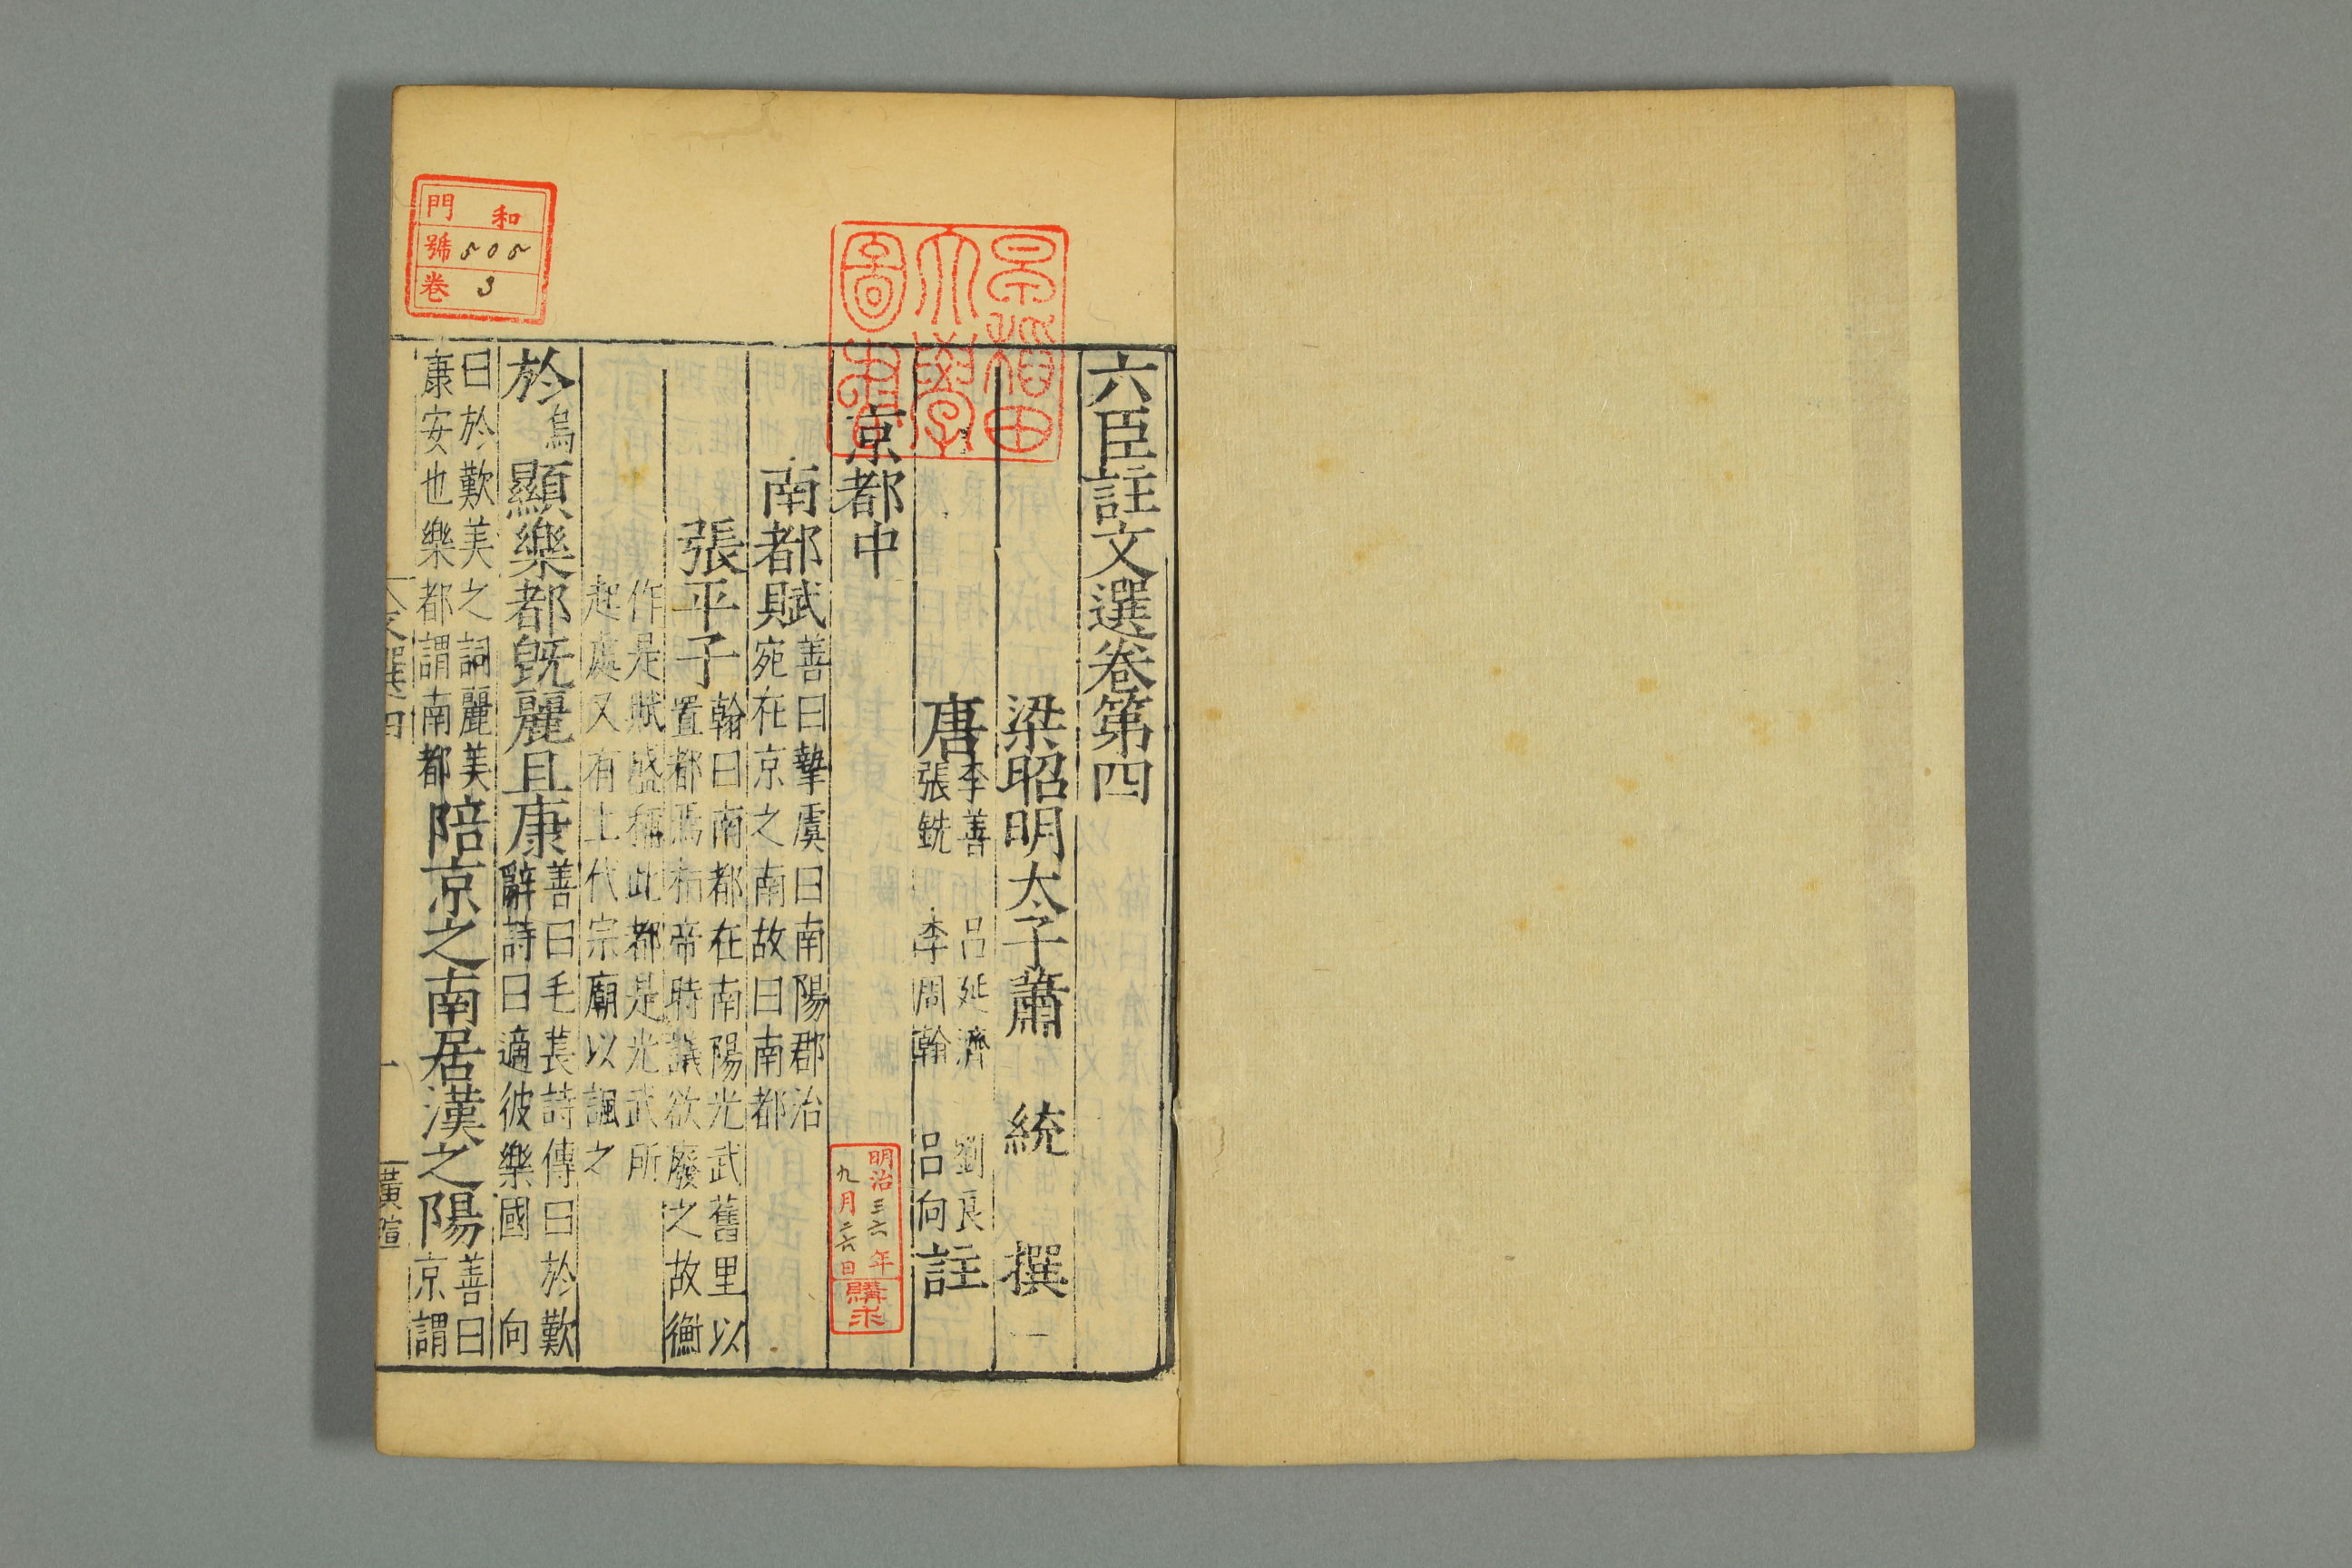 六臣註文選卷第四
梁昭明太子蕭 統 撰
唐李善 呂延濟 劉良
張銑 李周翰 呂向註
京都中
南都賦善曰摯虞曰南陽郡治
宛在京之南故曰南都
張平子翰曰南都在南陽光武舊里以
置都焉桓帝時議欲廢之故衡
作是賦盛稱此都是光武所
起處又有上代宗廟以諷之
於烏顯樂都旣麗且康善曰毛萇詩傳曰於歎
辭詩曰適彼樂國 向
曰於歎美之詞麗美
康安也樂都謂南都陪京之南居漢之陽善曰
京謂
文選四
一
黃瑄
早稻田
大學
圖書
和
門
號 505
卷 3
明治三六年
九月二六日
購求